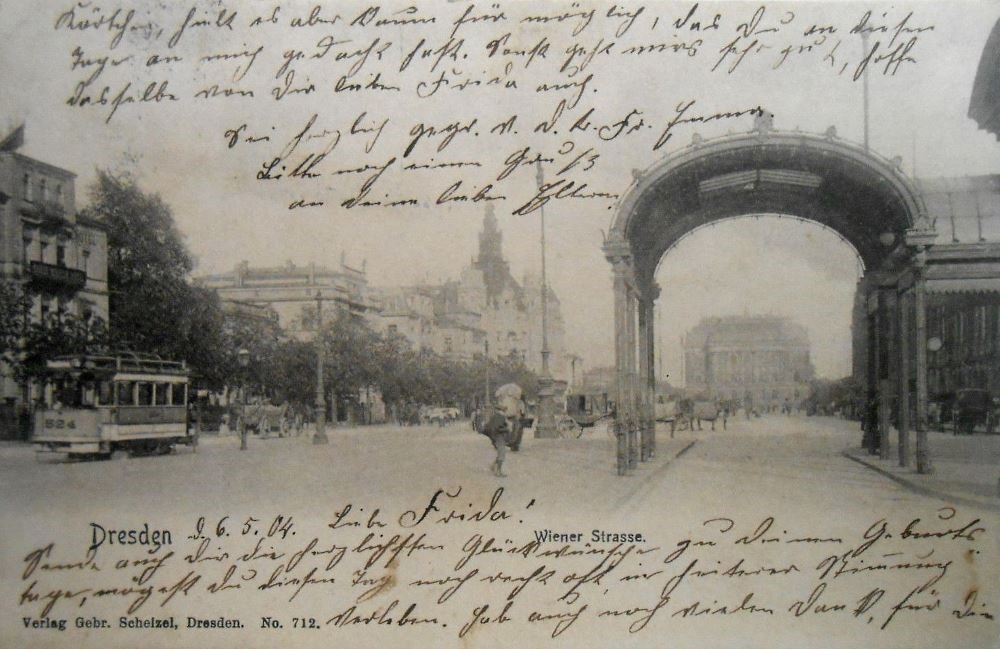 Dresden
d. 6. 5. 04.
Liebe Frida!
Wiener Strasse.
Sende auch Dir die herzlichsten Glückwünsche zu Deinem Geburts
tage, mögest Du diesen Tag noch recht oft in heiterer Stimmung
Verlag Gebr. Scheizel, Dresden. No. 712.
verleben. Hab auch noch vielen Dank, für die
Kärtchen, hielt es aber kaum für möglich, das Du an diesen
Tage an mich gedacht hast. Sonst geht mirs sehr gut, hoffe
dasselbe von Dir lieben Frida auch.
Sei herzlich gegr. v. d.
Bitte noch einen Gruß
an deine lieben Eltern.
524